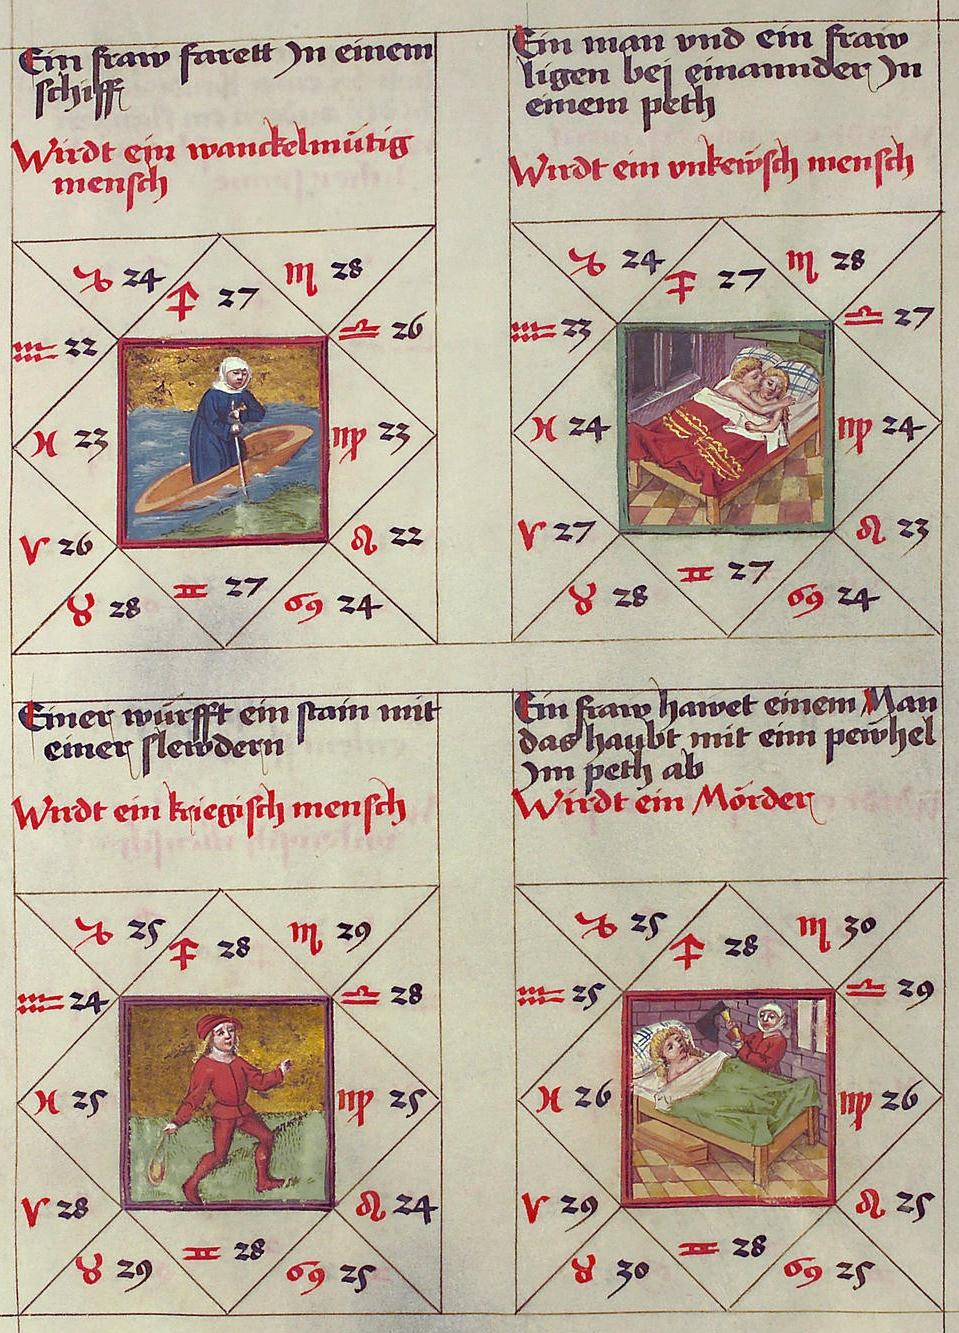 Ein fraw farett Jn einem
schiff
Wirdt ein wanckelmütig
mensch
♑ 24
♐ 27
♏ 28
♒ 22
♎ 26
♓ 23
♍ 23
♈ 26
♌ 22
♉ 28
♊ 27
♋ 24
Ein man vnd ein fraw
ligen bej einannder Jn
einem peth
Wirdt ein vnkewsch mensch
♑ 24
♐ 27
♏ 28
♒ 23
♎ 27
♓ 24
♍ 24
♈ 27
♌ 23
♉ 28
♊ 27
♋ 24
Einer würfft ein stain mit
einer slewdern
Wirdt ein kriegisch mensch
♑ 25
♐ 28
♏ 29
♒ 24
♎ 28
♓ 25
♍ 25
♈ 28
♌ 24
♉ 29
♊ 28
♋ 25
Ein fraw hawet einem Man
das haubt mit eim pewhel
Jm peth ab
Wirdt ein Mörder
♑ 25
♐ 28
♏ 30
♒ 25
♎ 29
♓ 26
♍ 26
♈ 29
♌ 25
♉ 30
♊ 28
♋ 25